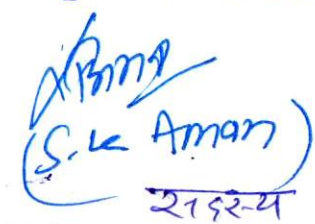 (S.K Aman)
सदस्य